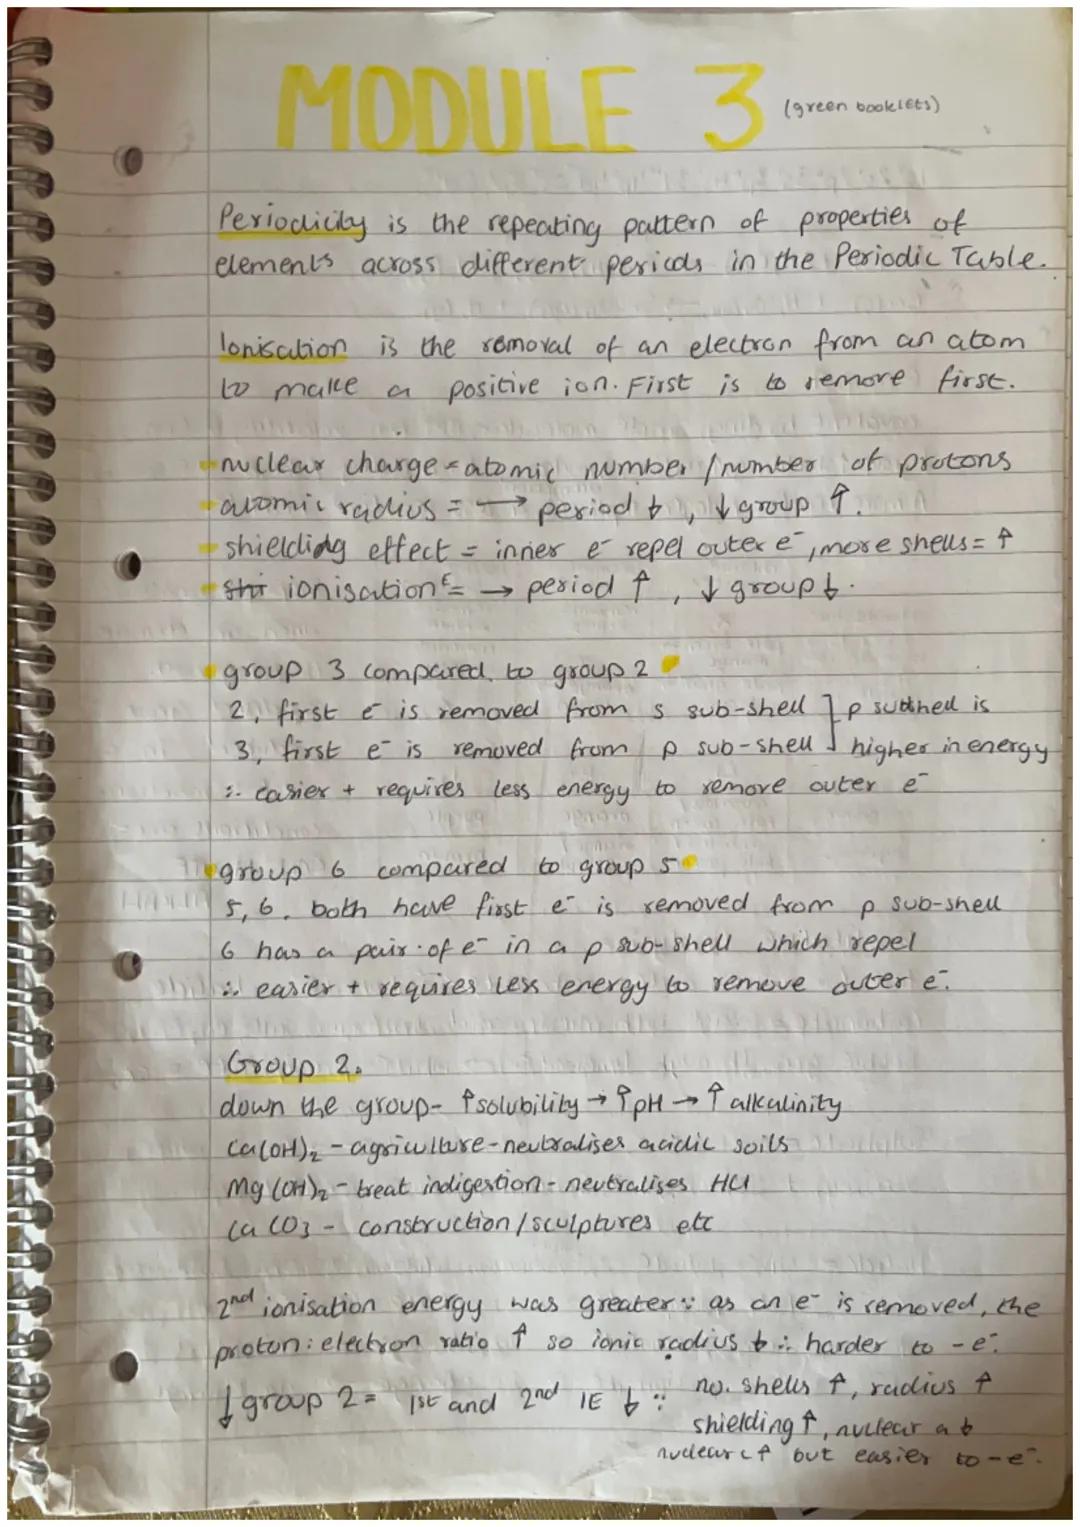 MODULE 3 (green booklets)
Periodicity is the repeating pattern of properties of
elements across different periods in the Periodic Table.
Ionisation is the removal of an electron from an atom
to make a positive ion. First is to remove first.
- nuclear charge = atomic number / number of protons
- atomic radius = → period ↓, ↓ group ↑.
- shielding effect = inner e⁻ repel outer e⁻, more shells = ↑
- ionisation E = → period ↑, ↓ group ↓.
• group 3 compared to group 2 •
2, first e⁻ is removed from s sub-shell ] p subshell is
3, first e⁻ is removed from p sub-shell ] higher in energy
∴ easier + requires less energy to remove outer e⁻
• group 6 compared to group 5 •
5, 6, both have first e⁻ is removed from p sub-shell
6 has a pair of e⁻ in a p sub-shell which repel
∴ easier + requires less energy to remove outer e⁻.
Group 2.
down the group - ↑ solubility → ↑ pH → ↑ alkalinity
Ca(OH)₂ - agriculture - neutralises acidic soils
Mg(OH)₂ - treat indigestion - neutralises HCl
CaCO₃ - construction/sculptures etc
2nd ionisation energy was greater ∵ as an e⁻ is removed, the
proton : electron ratio ↑ so ionic radius ↓ ∴ harder to -e⁻.
↓ group 2 = 1st and 2nd IE ↓ ∵ no. shells ↑, radius ↑
shielding ↑, nuclear a ↓
nuclear c ↑ but easier to -e⁻.